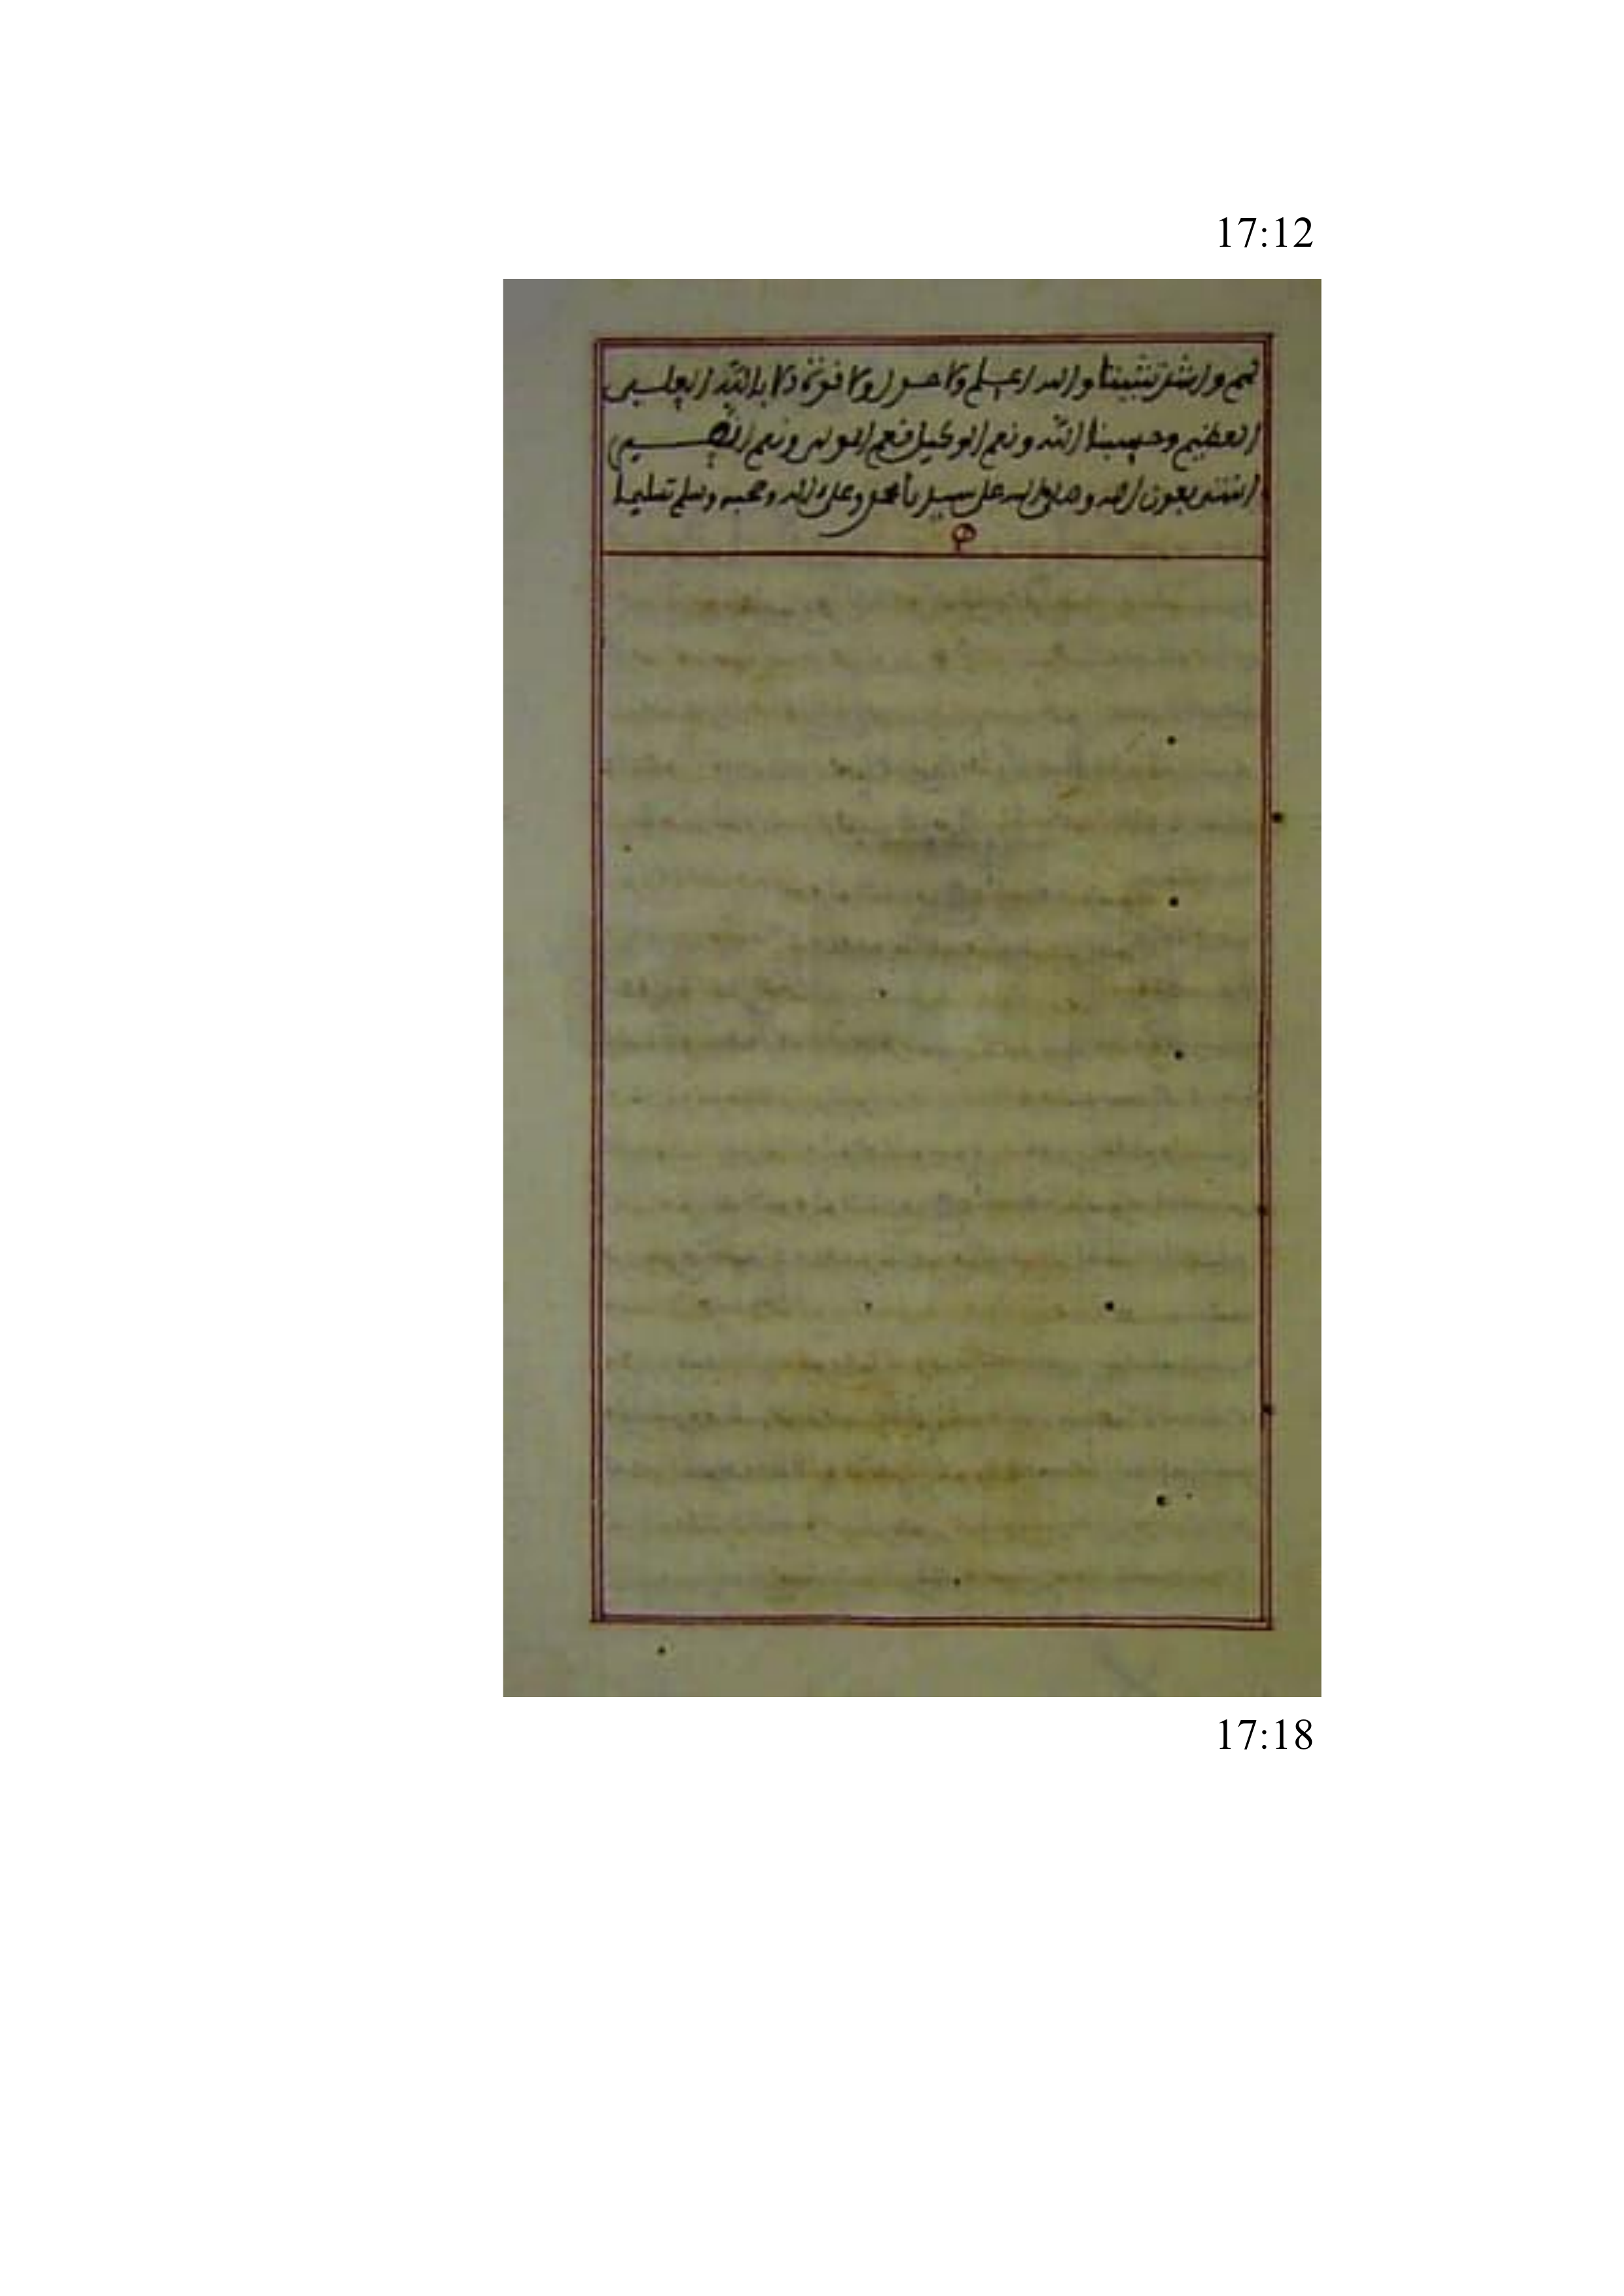 17:12
لهم واشد تثبيتا والله اعلم ولا حول ولا قوة الا بالله العلي
العظيم وحسبنا الله ونعم الوكيل فنعم المولى ونعم النصيم
انتهى بعون الله وصلى الله على سيدنا محمد وعلى ءاله وصحبه وسلم تسليما
17:18